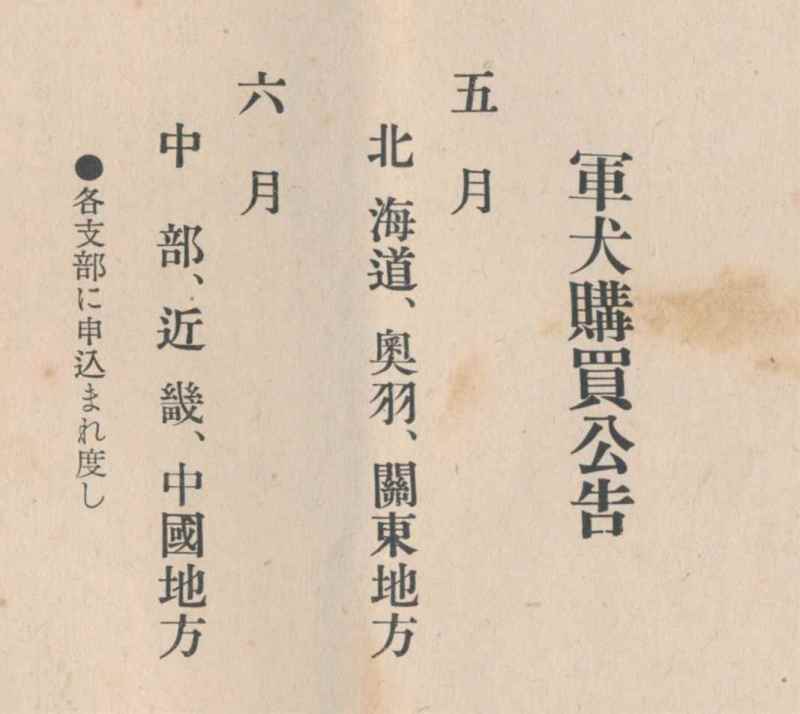 軍犬購買公告
五月
北海道、奥羽、關東地方
六月
中部、近畿、中國地方
●各支部に申込まれ度し